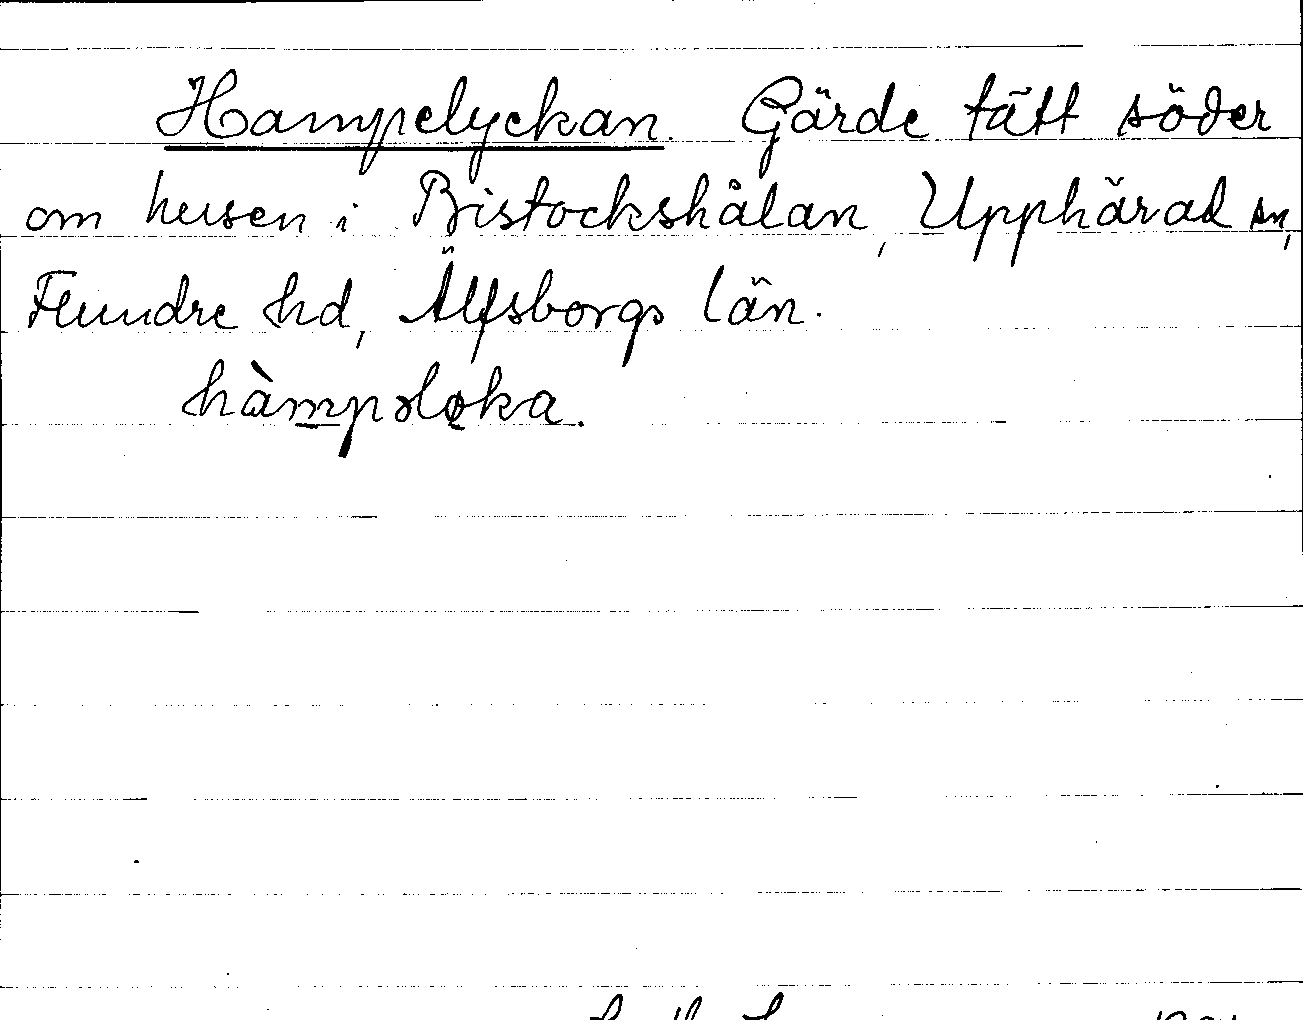 Hampelyckan. Gärde tätt söder
om husen i Bistockshålan, Upphärad sn,
Flundre hd, Älfsborgs län.
hàmpəlɵka.